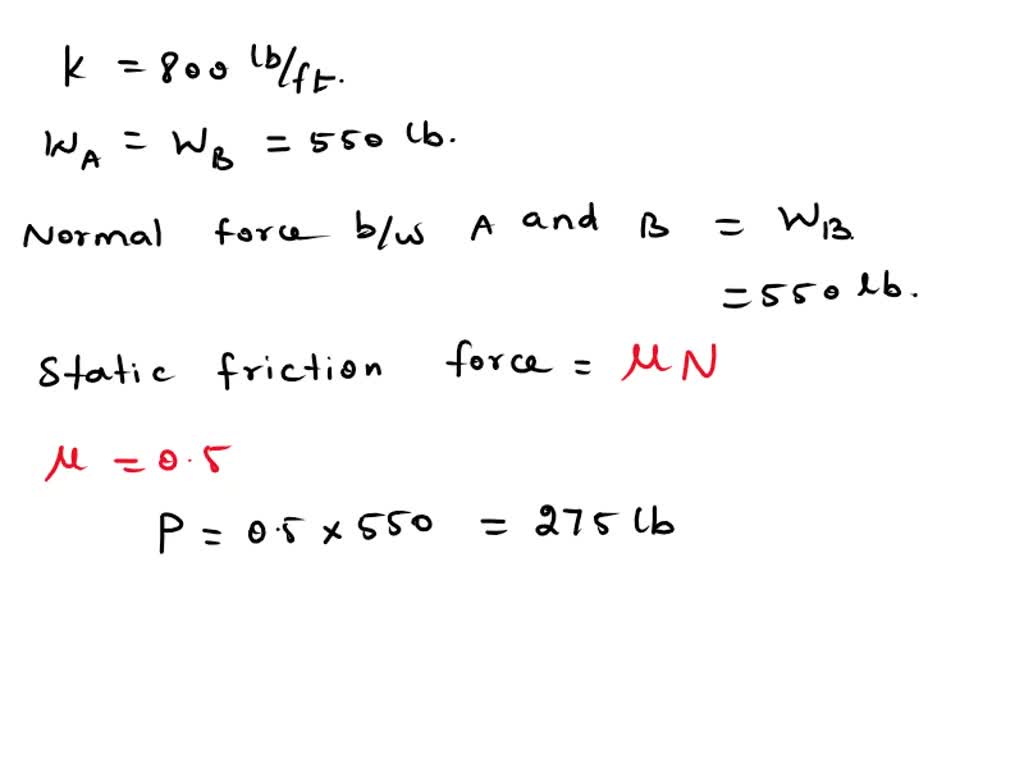 k = 800 lb/ft.
WA = WB = 550 lb.
Normal force b/w A and B = WB.
= 550 lb.
Static friction force = μN
μ = 0.5
P = 0.5 × 550 = 275 lb